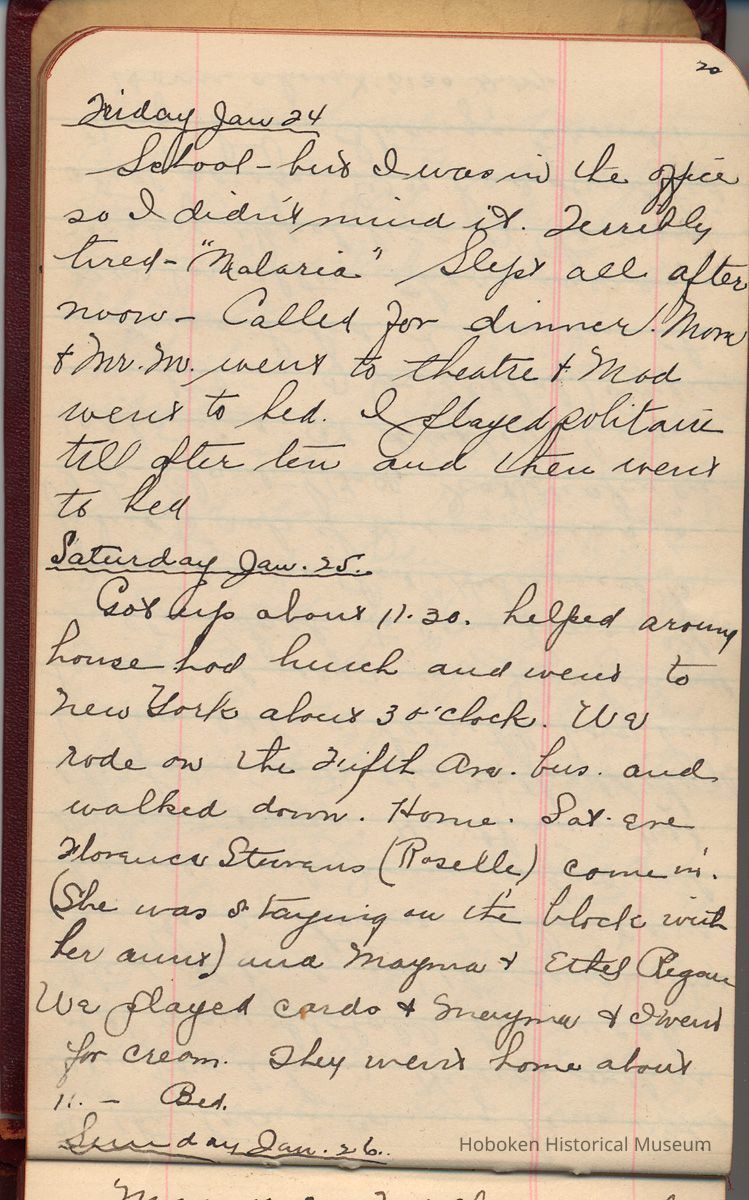 20
Friday Jan 24
School - but I was in the office
so I didn't mind it. Terribly
tired - "Malaria" Slept all after
noon - Called for dinner. Mom
& Mr. M. went to theatre & Mad
went to bed. I played solitaire
till after ten and then went
to bed
Saturday Jan. 25.
Got up about 11.30. helped around
house had lunch and went to
New York about 3 o'clock. We
rode on the Fifth Ave. bus. and
walked down. Home. Sat. eve
Florence Stevens (Roselle) come in.
(She was staying on the block with
her aunt) and Mayme & Ethel Regan
We played cards & Mayme & I went
for cream. They went home about
11. - Bed.
Sunday Jan. 26.
Hoboken Historical Museum